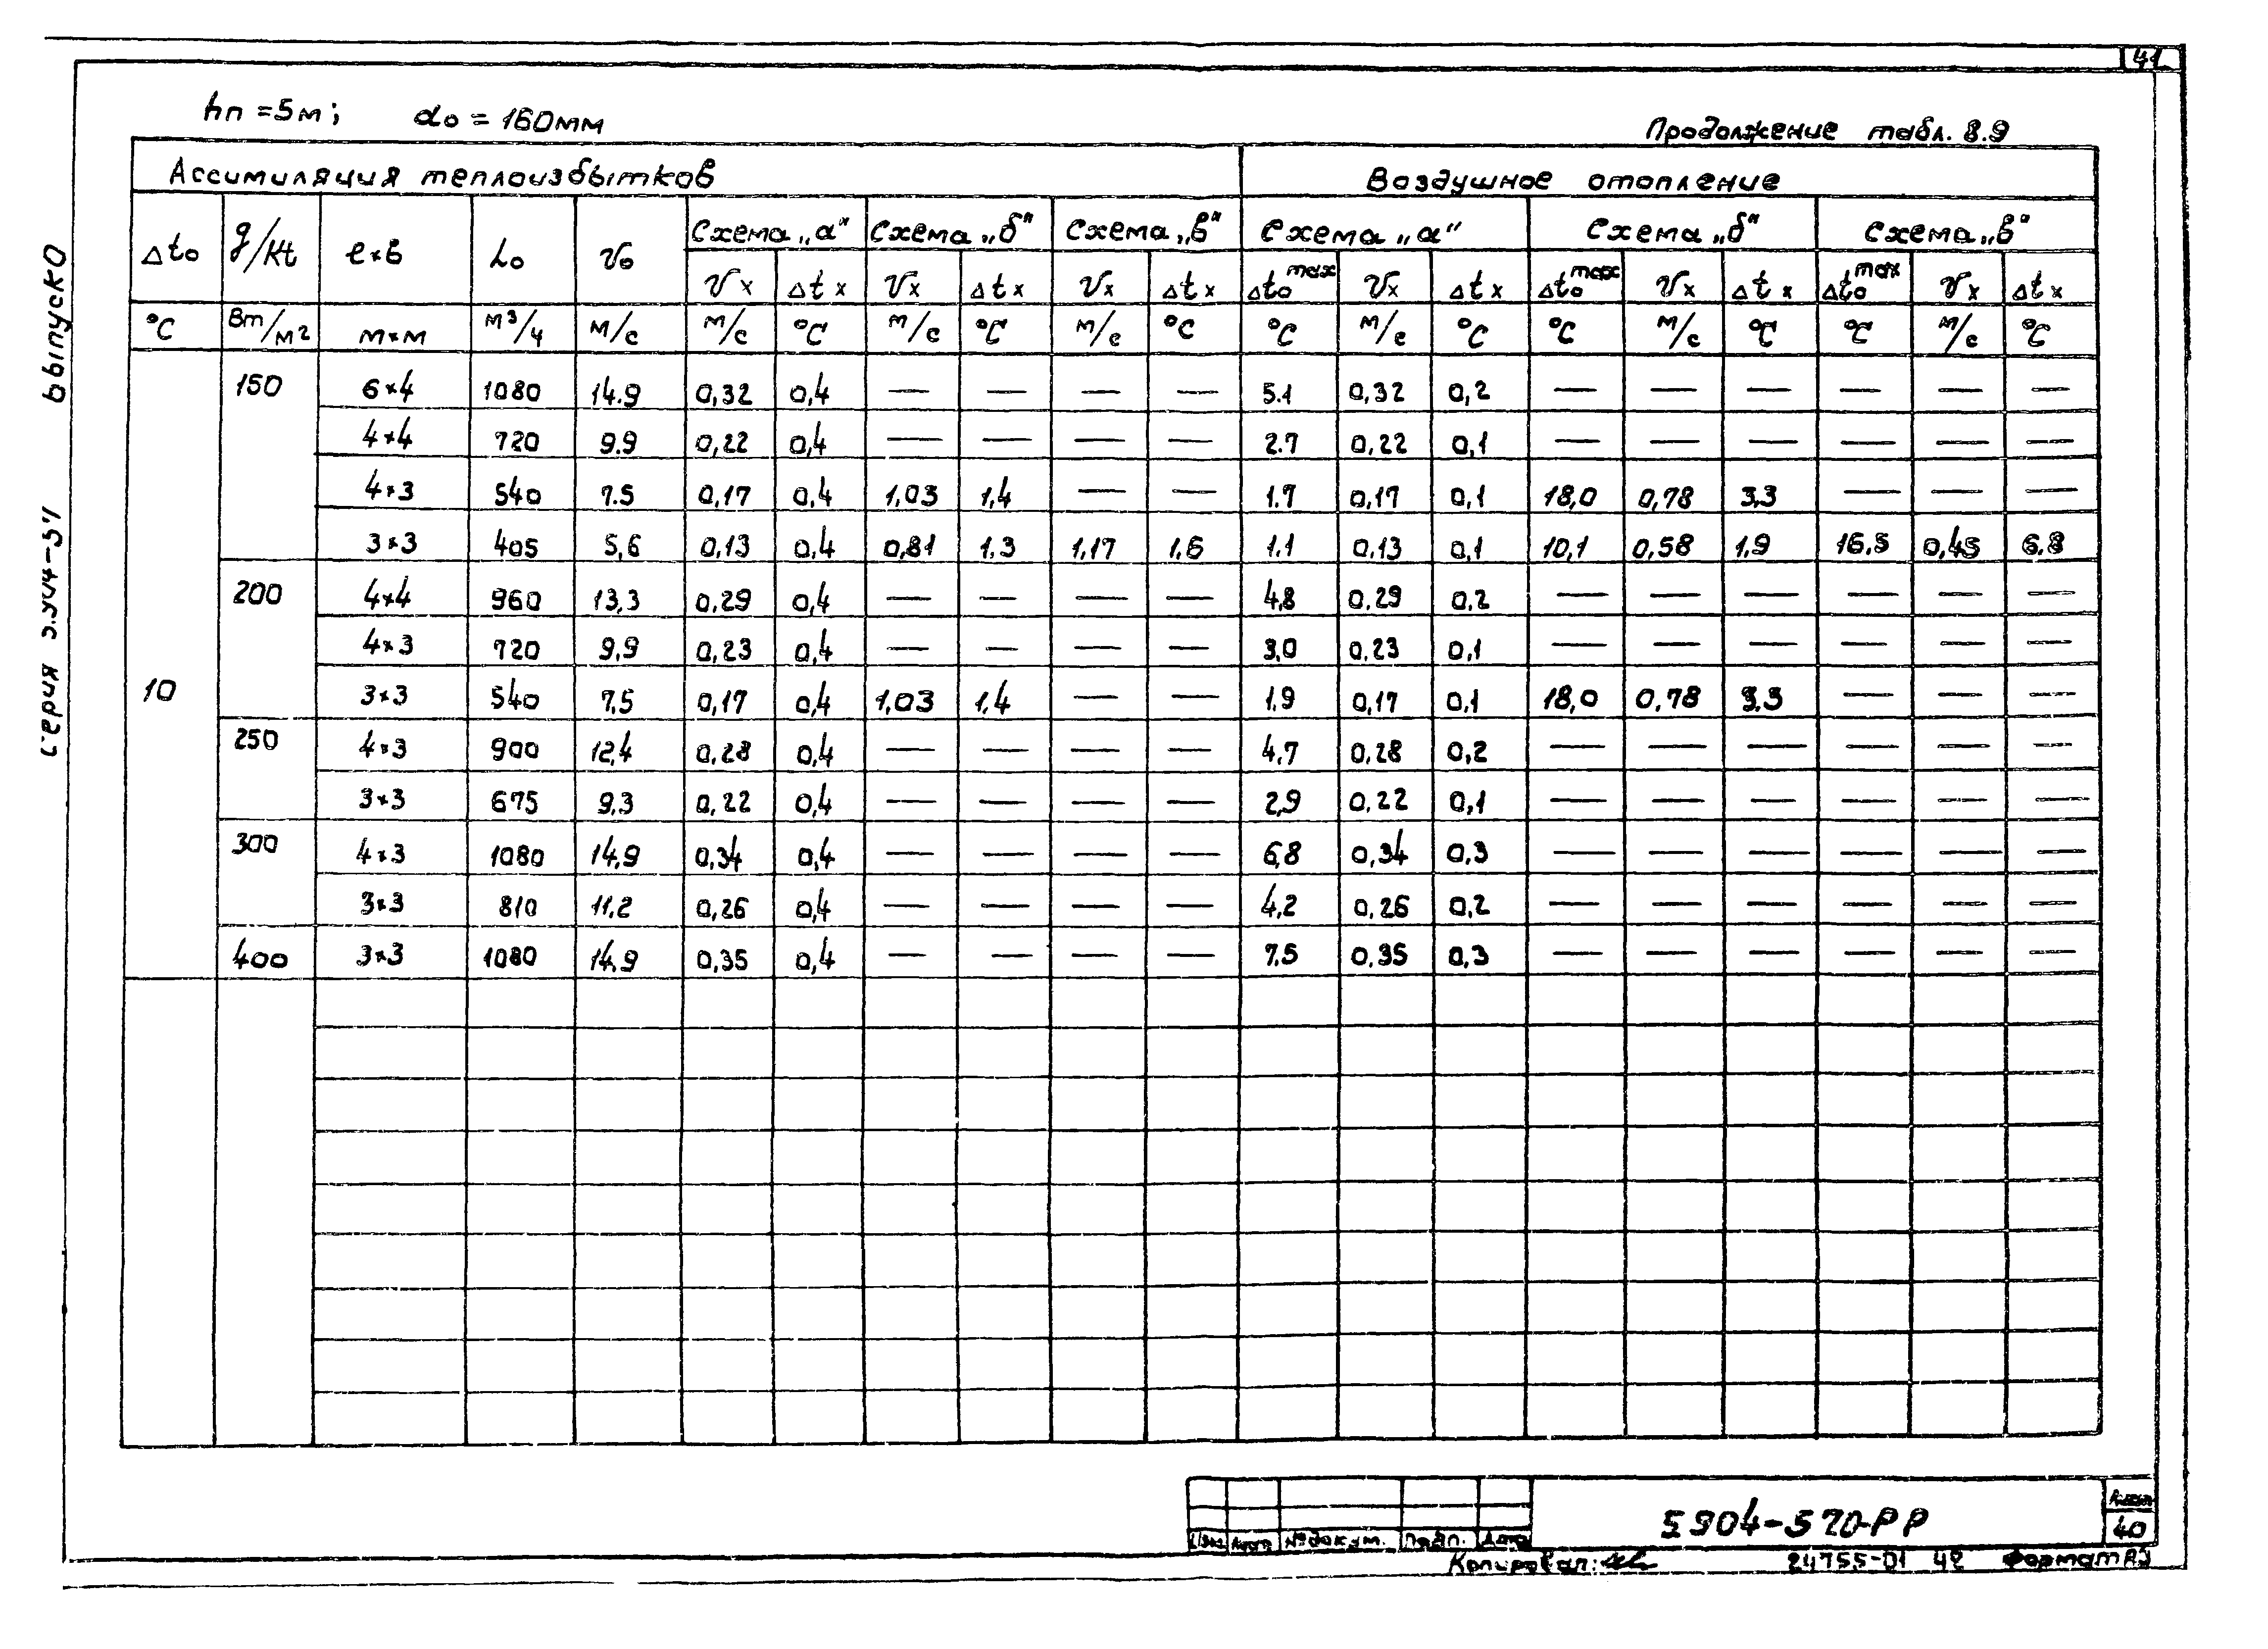 41
hп = 5м; do = 160мм
Продолжение табл. 8.9
Ассимиляция теплоизбытков | Воздушное отопление
Δto | q/Kt | l×b | Lo | Vo | Схема „а" | Схема „б" | Схема „в" | Схема „а" | Схема „б" | Схема „в"
Vx | Δtx | Vx | Δtx | Vx | Δtx | Δto max | Vx | Δtx | Δto max | Vx | Δtx | Δto max | Vx | Δtx
°С | Вт/м² | м×м | м³/ч | м/с | м/с | °С | м/с | °С | м/с | °С | °С | м/с | °С | °С | м/с | °С | °С | м/с | °С
150 | 6×4 | 1080 | 14.9 | 0,32 | 0,4 | — | — | — | — | 5.1 | 0,32 | 0,2 | — | — | — | — | — | —
4×4 | 720 | 9.9 | 0,22 | 0,4 | — | — | — | — | 2.7 | 0,22 | 0,1 | — | — | — | — | — | —
4×3 | 540 | 7.5 | 0,17 | 0,4 | 1,03 | 1,4 | — | — | 1.7 | 0,17 | 0,1 | 18,0 | 0,78 | 3,3 | — | — | —
3×3 | 405 | 5,6 | 0,13 | 0,4 | 0,81 | 1,3 | 1,17 | 1,6 | 1.1 | 0,13 | 0,1 | 10,1 | 0,58 | 1,9 | 16,5 | 0,45 | 6,8
200 | 4×4 | 960 | 13,3 | 0,29 | 0,4 | — | — | — | — | 4,8 | 0,29 | 0,2 | — | — | — | — | — | —
4×3 | 720 | 9,9 | 0,23 | 0,4 | — | — | — | — | 3,0 | 0,23 | 0,1 | — | — | — | — | — | —
10 | 3×3 | 540 | 7,5 | 0,17 | 0,4 | 1,03 | 1,4 | — | — | 1,9 | 0,17 | 0,1 | 18,0 | 0,78 | 3,3 | — | — | —
250 | 4×3 | 900 | 12,4 | 0,28 | 0,4 | — | — | — | — | 4,7 | 0,28 | 0,2 | — | — | — | — | — | —
3×3 | 675 | 9,3 | 0,22 | 0,4 | — | — | — | — | 2,9 | 0,22 | 0,1 | — | — | — | — | — | —
300 | 4×3 | 1080 | 14,9 | 0,34 | 0,4 | — | — | — | — | 6,8 | 0,34 | 0,3 | — | — | — | — | — | —
3×3 | 810 | 11,2 | 0,26 | 0,4 | — | — | — | — | 4,2 | 0,26 | 0,2 | — | — | — | — | — | —
400 | 3×3 | 1080 | 14,9 | 0,35 | 0,4 | — | — | — | — | 7,5 | 0,35 | 0,3 | — | — | — | — | — | —
серия 5.904-5.1 выпуск 0
Изм. Лист № докум. Подп. Дата
5904-570-РР
Лист
40
Копировал:
24755-01 42 Формат А3